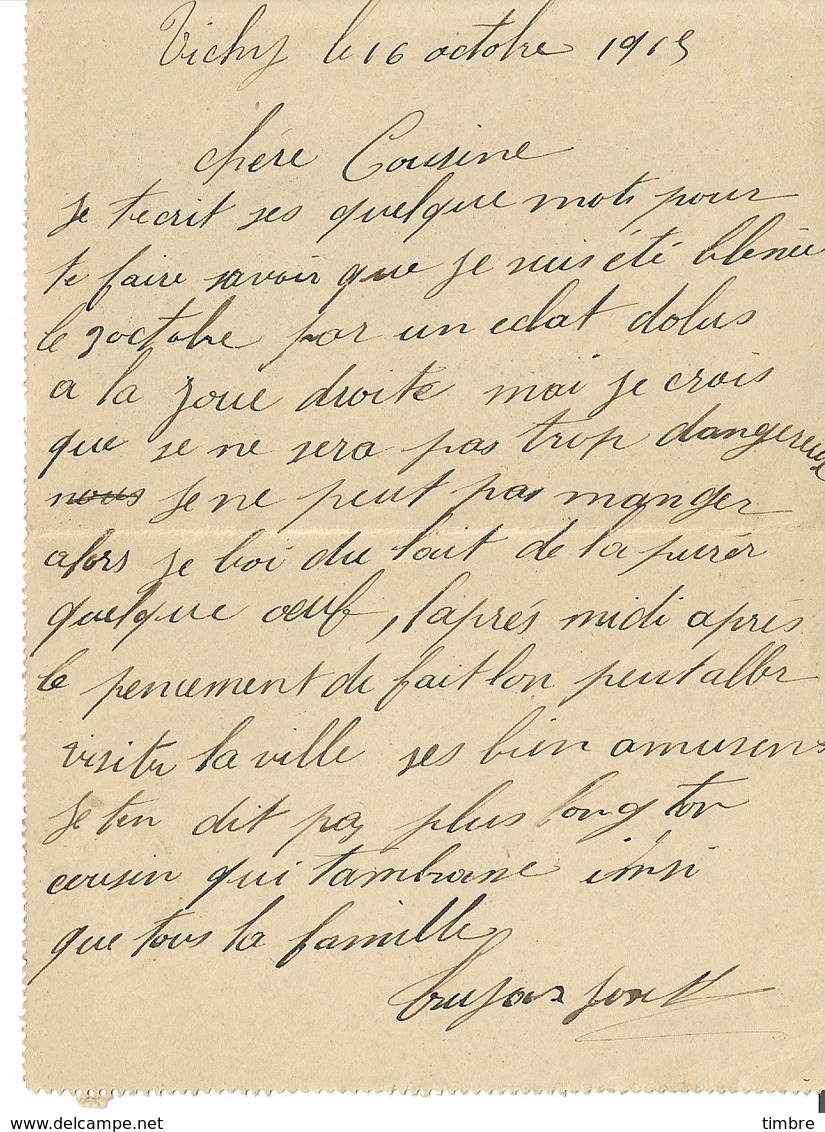 Vichy le 16 octobre 1915
chére Cousine
Je técrit ses quelque mots pour
te faire savoir que Je suis été blesée
le 3 octobre par un eclat dobus
a la Joue droite mai Je crois
que se ne sera pas trop dangereuse
nous Je ne peut pas manger
alors Je boi du lait de la purér
quelque oeuf, l'aprés midi aprés
le pencement de fait lon peut aller
visiter la ville ses bien amusens
Je ten dit pas plus long ton
cousin qui tambrase insi
que tous la famille
timbre